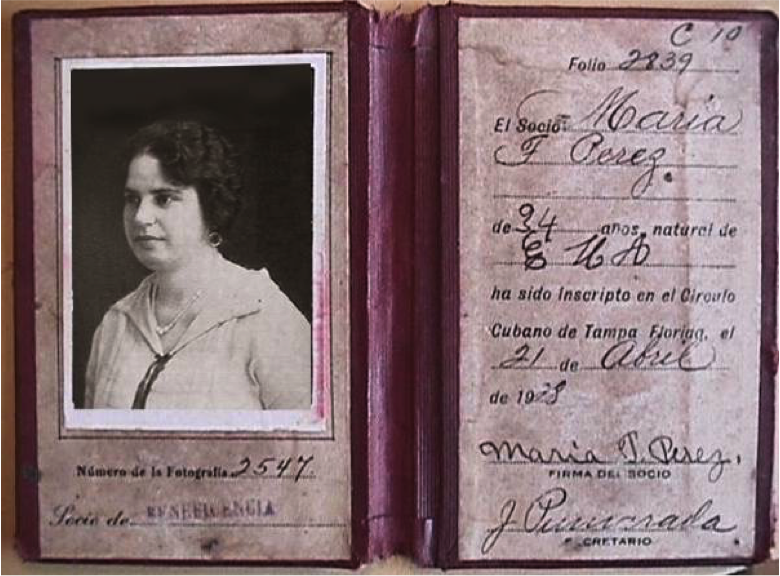 Número de la Fotografía 2547
Socio de BENEFICENCIA
C 10
Folio 2839
El Socio: Maria
F Perez.
de 34 años, natural de
E U A
ha sido inscripto en el Circulo
Cubano de Tampa Florida, el
21 de Abril
de 1928
Maria F. Perez.
FIRMA DEL SOCIO
J
SECRETARIO